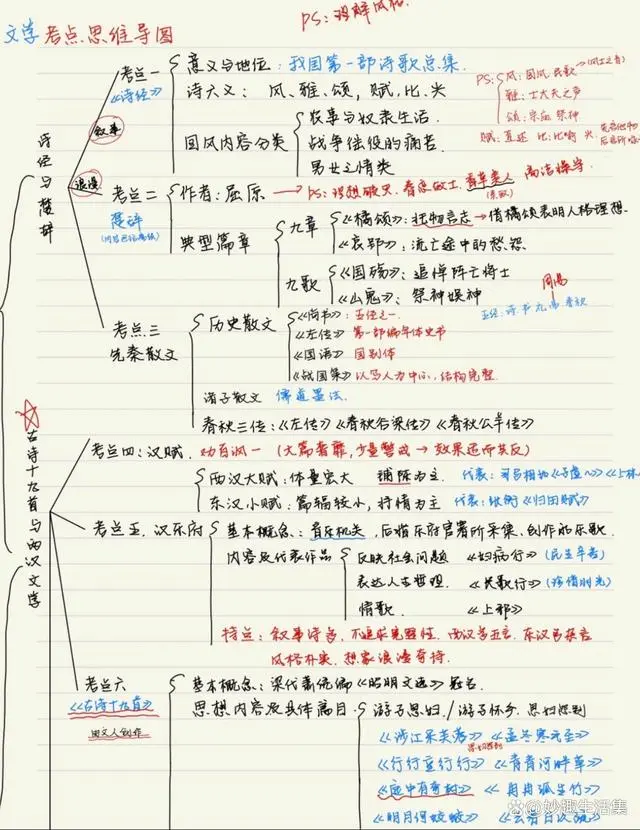 PS: 理解风格.
文学 考点思维导图
诗经与楚辞
叙事
浪漫
考点一
《诗经》
意义与地位: 我国第一部诗歌总集.
诗六义: 风、雅、颂, 赋、比、兴
PS: 风: 国风 民歌
雅: 士大夫之声
颂: 宗庙祭神
赋: 直述 比: 比喻 兴:
国风内容分类
农事与奴隶生活.
战争徭役的痛苦
男女之情类
考点二
楚辞
作者: 屈原
PS: 理想破灭. 香草美人 高洁操守
典型篇章
九章
《橘颂》: 托物言志 → 借橘颂表明人格理想.
《哀郢》: 流亡途中的愁怨
九歌
《国殇》: 追悼阵亡将士
《山鬼》: 祭神娱神
周易
五经: 诗 书 礼 易 春秋
考点三
先秦散文
历史散文
《尚书》: 五经之一
《左传》 第一部编年体史书
《国语》 国别体
《战国策》 以写人为中心, 结构完整.
诸子散文 儒道墨法.
春秋三传: 《左传》《春秋谷梁传》《春秋公羊传》
古诗十九首与两汉文学
考点四: 汉赋. 劝百讽一 (大篇奢靡, 少量警戒 → 效果适而其反)
西汉大赋: 体量宏大 铺陈为主. 代表: 司马相如《子虚~》《上林
东汉小赋: 篇辐较小, 抒情为主 代表: 张衡《归田赋》
考点五. 汉乐府
基本概念: 音乐机关, 后指乐府官署所采集、创作的乐歌.
内容及代表作品
反映社会问题 《妇病行》 (民生辛苦)
表达人生哲理. 《长歌行》 (珍惜时光)
情歌. 《上邪》
特点: 叙事诗多, 不追求完整性. 西汉多五言, 东汉多杂言
风格朴实, 想象浪漫奇诗.
考点六
《古诗十九首》
由文人创作
基本概念: 梁代萧统编《昭明文选》题名.
思想内容及具体篇目
游子思妇. / 游子怀乡. 思妇怨别
《涉江采芙蓉》 《孟冬寒气至》
《行行重行行》 《青青河畔草》
《庭中有奇树》 《冉冉孤生竹》
《明月何皎皎》
妙趣生活集